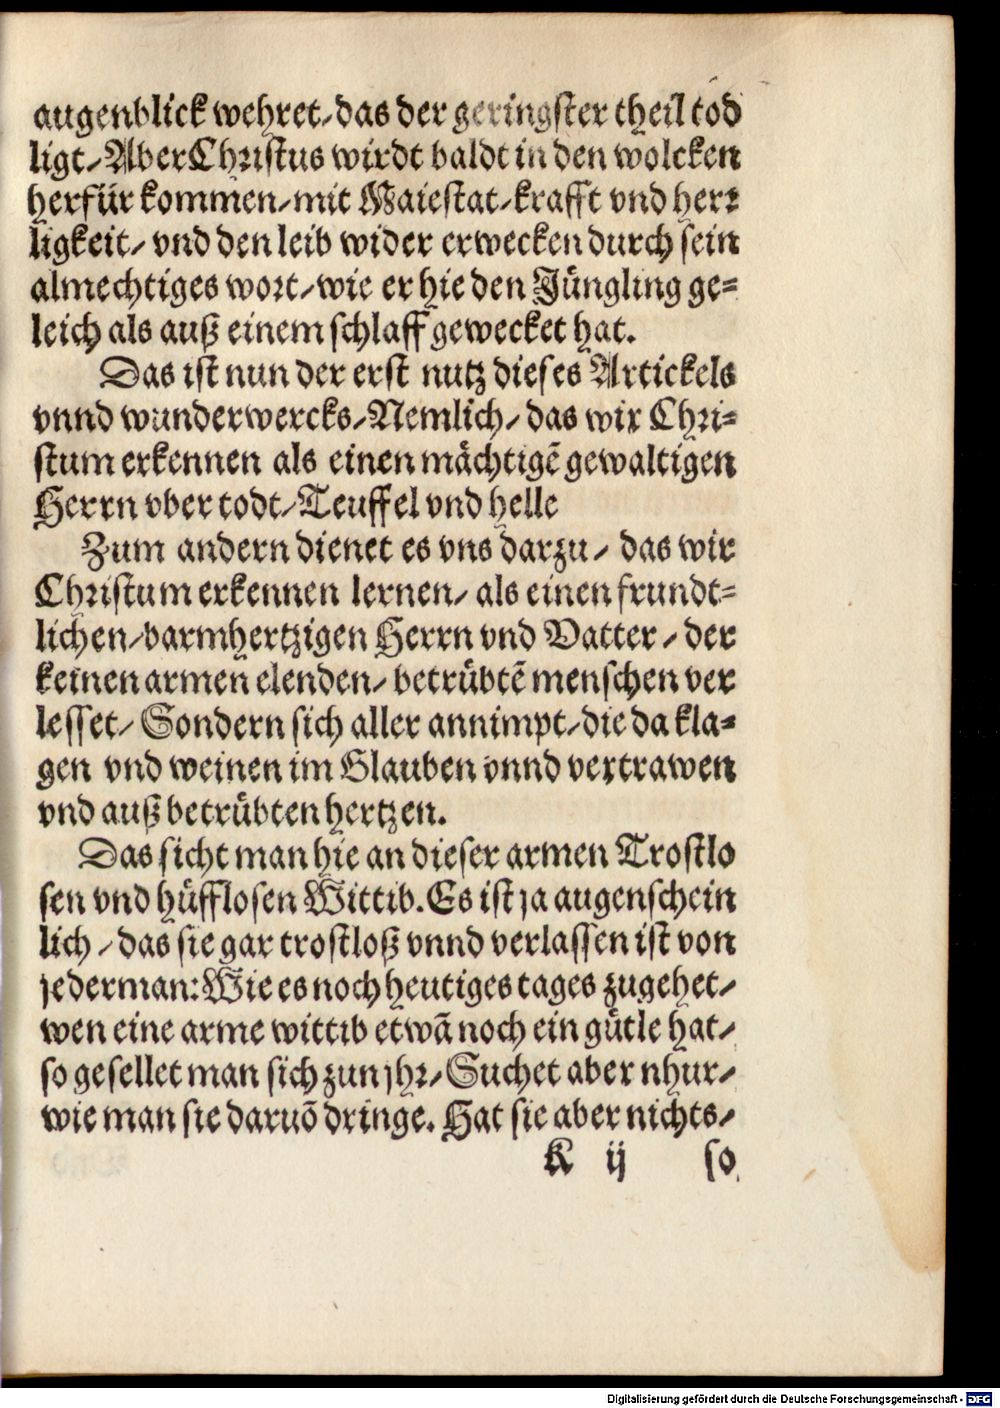 augenblick wehret/ das der geringster theil tod
ligt/ Aber Christus wirdt baldt in den wolcken
herfür kommen/ mit Maiestat/ krafft vnd herr
ligkeit/ vnd den leib wider erwecken durch sein
almechtiges wort/ wie er hie den Jüngling ge=
leich als auß einem schlaff gewecket hat.
Das ist nun der erst nutz dieses Artickels
vnnd wunderwercks/ Nemlich/ das wir Chri=
stum erkennen als einen mächtigẽ gewaltigen
Herrn vber todt/ Teuffel vnd helle
Zum andern dienet es vns darzu/ das wir
Christum erkennen lernen/ als einen frundt=
lichen/ barmhertzigen Herrn vnd Vatter/ der
keinen armen elenden/ betrübtẽ menschen ver
lesset/ Sondern sich aller annimpt/ die da kla=
gen vnd weinen im Glauben vnnd vertrawen
vnd auß betrübten hertzen.
Das sicht man hie an dieser armen Trostlo
sen vnd hüfflosen Wittib. Es ist ja augenschein
lich/ das sie gar trostloß vnnd verlassen ist von
jederman: Wie es noch heutiges tages zugehet/
wen eine arme wittib etwã noch ein gütle hat/
so gesellet man sich zun jhr/ Suchet aber nhur/
wie man sie daruõ dringe. Hat sie aber nichts/
K ij so
Digitalisierung gefördert durch die Deutsche Forschungsgemeinschaft - DFG